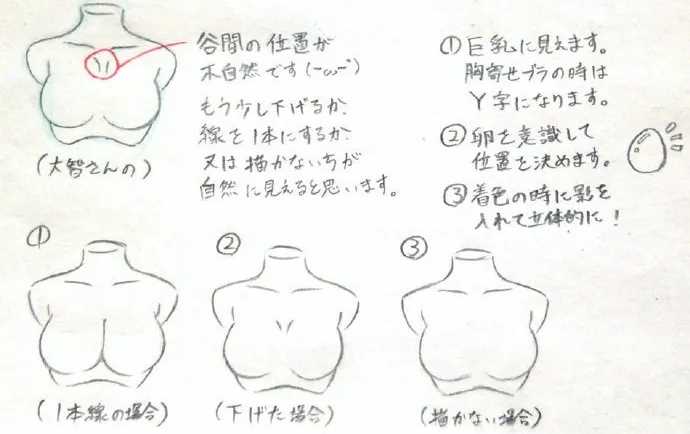 谷間の位置が
不自然です(ーωー")
もう少し下げるか、
線を1本にするか
又は描かないちが
自然に見えると思います。
(大智さんの)
① 巨乳に見えます。
胸寄せブラの時は
Y字になります。
② 卵を意識して
位置を決めます。
③ 着色の時に影を
入れて立体的に!
①
②
③
(1本線の場合)
(下げた場合)
(描かない場合)